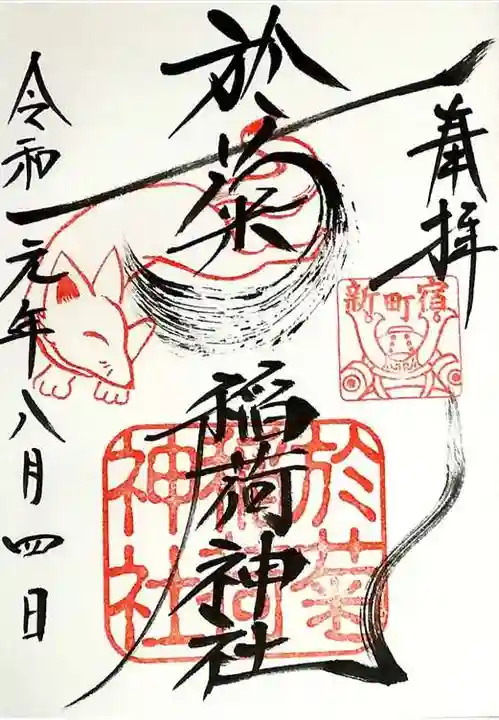 奉拝
新町宿
於菊稲荷神社
於菊
稲荷
神社
令和元年八月四日